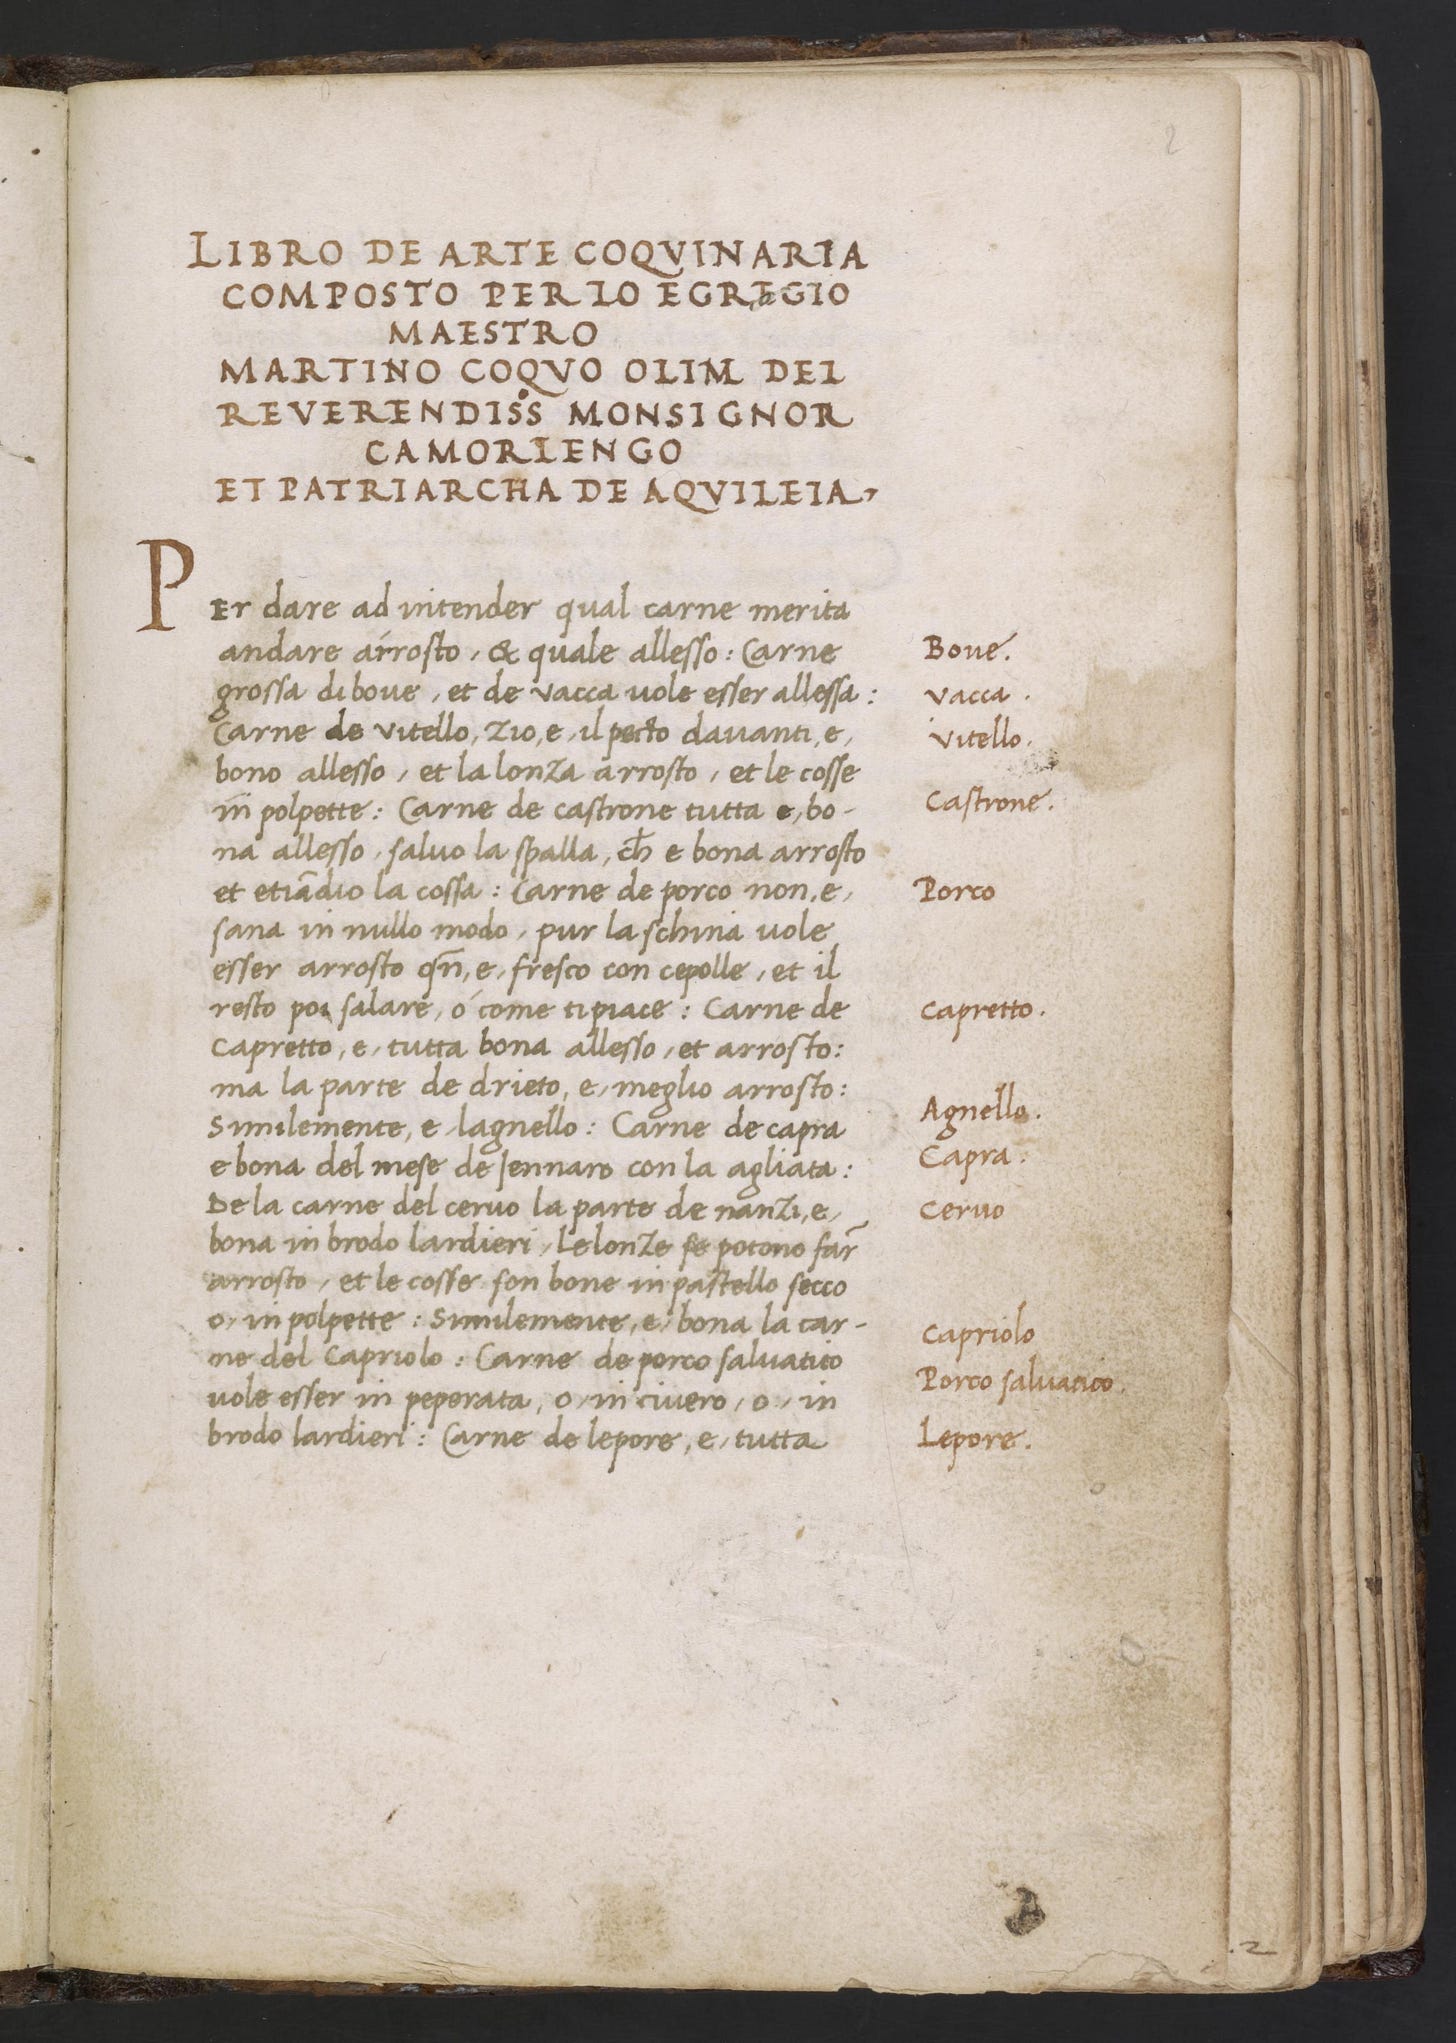 2
LIBRO DE ARTE COQVINARIA
COMPOSTO PER LO EGREGIO
MAESTRO
MARTINO COQVO OLIM DEL
REVERENDISS MONSIGNOR
CAMORLENGO
ET PATRIARCHA DE AQVILEIA,
PEr dare ad intender qual carne merita
andare arrosto, & quale allesso: Carne
grossa di boue, et de vacca uole esser allessa:
Carne de vitello, zio, e, il pecto dauanti, e,
bono allesso, et la lonza arrosto, et le cosse
in polpette: Carne de castrone tutta e, bo-
na allesso, saluo la spalla, ch̄ e bona arrosto
et etiādio la cossa: Carne de porco non, e,
sana in nullo modo, pur la schina uole
esser arrosto qn̄, e, fresco con cepolle, et il
resto poi salare, o come ti piace: Carne de
Capretto, e, tutta bona allesso, et arrosto:
ma la parte de drieto, e, meglio arrosto:
Similemente, e, lagnello: Carne de capra
e bona del mese de Jennaro con la agliata:
De la carne del ceruo la parte de nanzi, e,
bona in brodo lardieri, Le lonze se potono far̄
arrosto, et le cosse son bone in pastello secco
o, in polpette: Similemente, e, bona la car-
ne del Capriolo: Carne de porco saluatico
uole esser in peperata, o, in ciuero, o, in
brodo lardieri: Carne de lepore, e, tutta
Boue.
vacca.
vitello.
Castrone.
Porco
Capretto.
Agnello.
Capra.
Ceruo
Capriolo
Porco saluatico.
Lepore.
.2